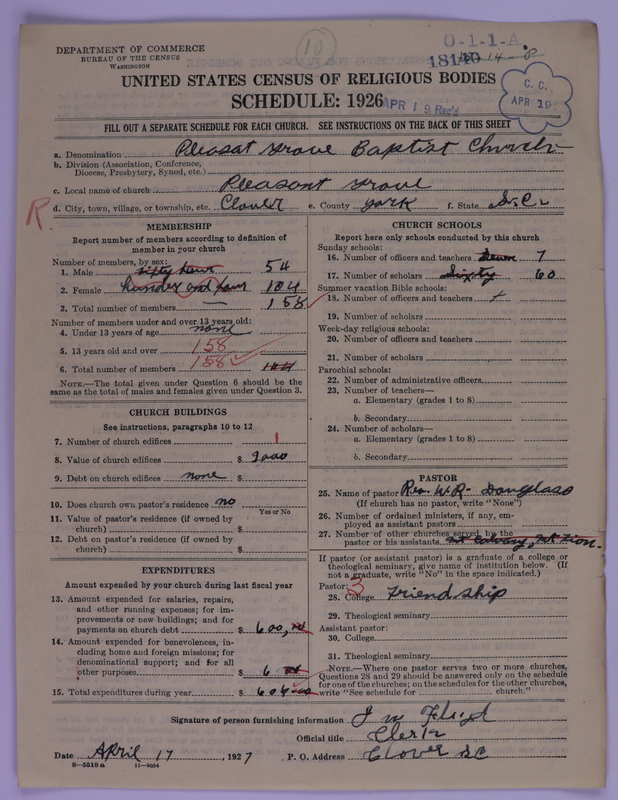 DEPARTMENT OF COMMERCE
BUREAU OF THE CENSUS
WASHINGTON
10
0-1-1-A.
18140
UNITED STATES CENSUS OF RELIGIOUS BODIES
SCHEDULE: 1926
APR 19 Rec'd
C. C.
APR 19
FILL OUT A SEPARATE SCHEDULE FOR EACH CHURCH. SEE INSTRUCTIONS ON THE BACK OF THIS SHEET
a. Denomination Pleasat Grove Baptist Church
b. Division (Association, Conference,
Diocese, Presbytery, Synod, etc.)
c. Local name of church Pleasant Grove
R
d. City, town, village, or township, etc. Clover e. County York f. State S.C.
MEMBERSHIP
Report number of members according to definition of
member in your church
Number of members, by sex:
1. Male fifty four 54
2. Female hundred and four 104
3. Total number of members 158
Number of members under and over 13 years old:
4. Under 13 years of age none
5. 13 years old and over 158
6. Total number of members 158 104
NOTE.—The total given under Question 6 should be the
same as the total of males and females given under Question 3.
CHURCH BUILDINGS
See instructions, paragraphs 10 to 12
7. Number of church edifices 1
8. Value of church edifices $ 2000
9. Debt on church edifices none $
10. Does church own pastor's residence no
Yes or No
11. Value of pastor's residence (if owned by
church) $
12. Debt on pastor's residence (if owned by
church) $
EXPENDITURES
Amount expended by your church during last fiscal year
13. Amount expended for salaries, repairs,
and other running expenses; for im-
provements or new buildings; and for
payments on church debt $ 600,00
14. Amount expended for benevolences, in-
cluding home and foreign missions; for
denominational support; and for all
other purposes $ 6 00
15. Total expenditures during year $ 606 00
CHURCH SCHOOLS
Report here only schools conducted by this church
Sunday schools:
16. Number of officers and teachers Seven 7
17. Number of scholars Sixty 60
Summer vacation Bible schools:
18. Number of officers and teachers
19. Number of scholars
Week-day religious schools:
20. Number of officers and teachers
21. Number of scholars
Parochial schools:
22. Number of administrative officers
23. Number of teachers—
a. Elementary (grades 1 to 8)
b. Secondary
24. Number of scholars—
a. Elementary (grades 1 to 8)
b. Secondary
PASTOR
25. Name of pastor Rev. W.R. Douglass
(If church has no pastor, write "None")
26. Number of ordained ministers, if any, em-
ployed as assistant pastors
27. Number of other churches served by the
pastor or his assistants Mt Calvary, Mt Zion.
If pastor (or assistant pastor) is a graduate of a college or
theological seminary, give name of institution below. (If
not a graduate, write "No" in the space indicated.)
Pastor: 3
28. College Friendship
29. Theological seminary
Assistant pastor:
30. College
31. Theological seminary
NOTE.—Where one pastor serves two or more churches,
Questions 28 and 29 should be answered only on the schedule
for one of the churches; on the schedules for the other churches,
write "See schedule for church."
Signature of person furnishing information J W Floyd
Official title Clerk
Date April 17, 1927 P. O. Address Clover SC
8—5518a 11—9034